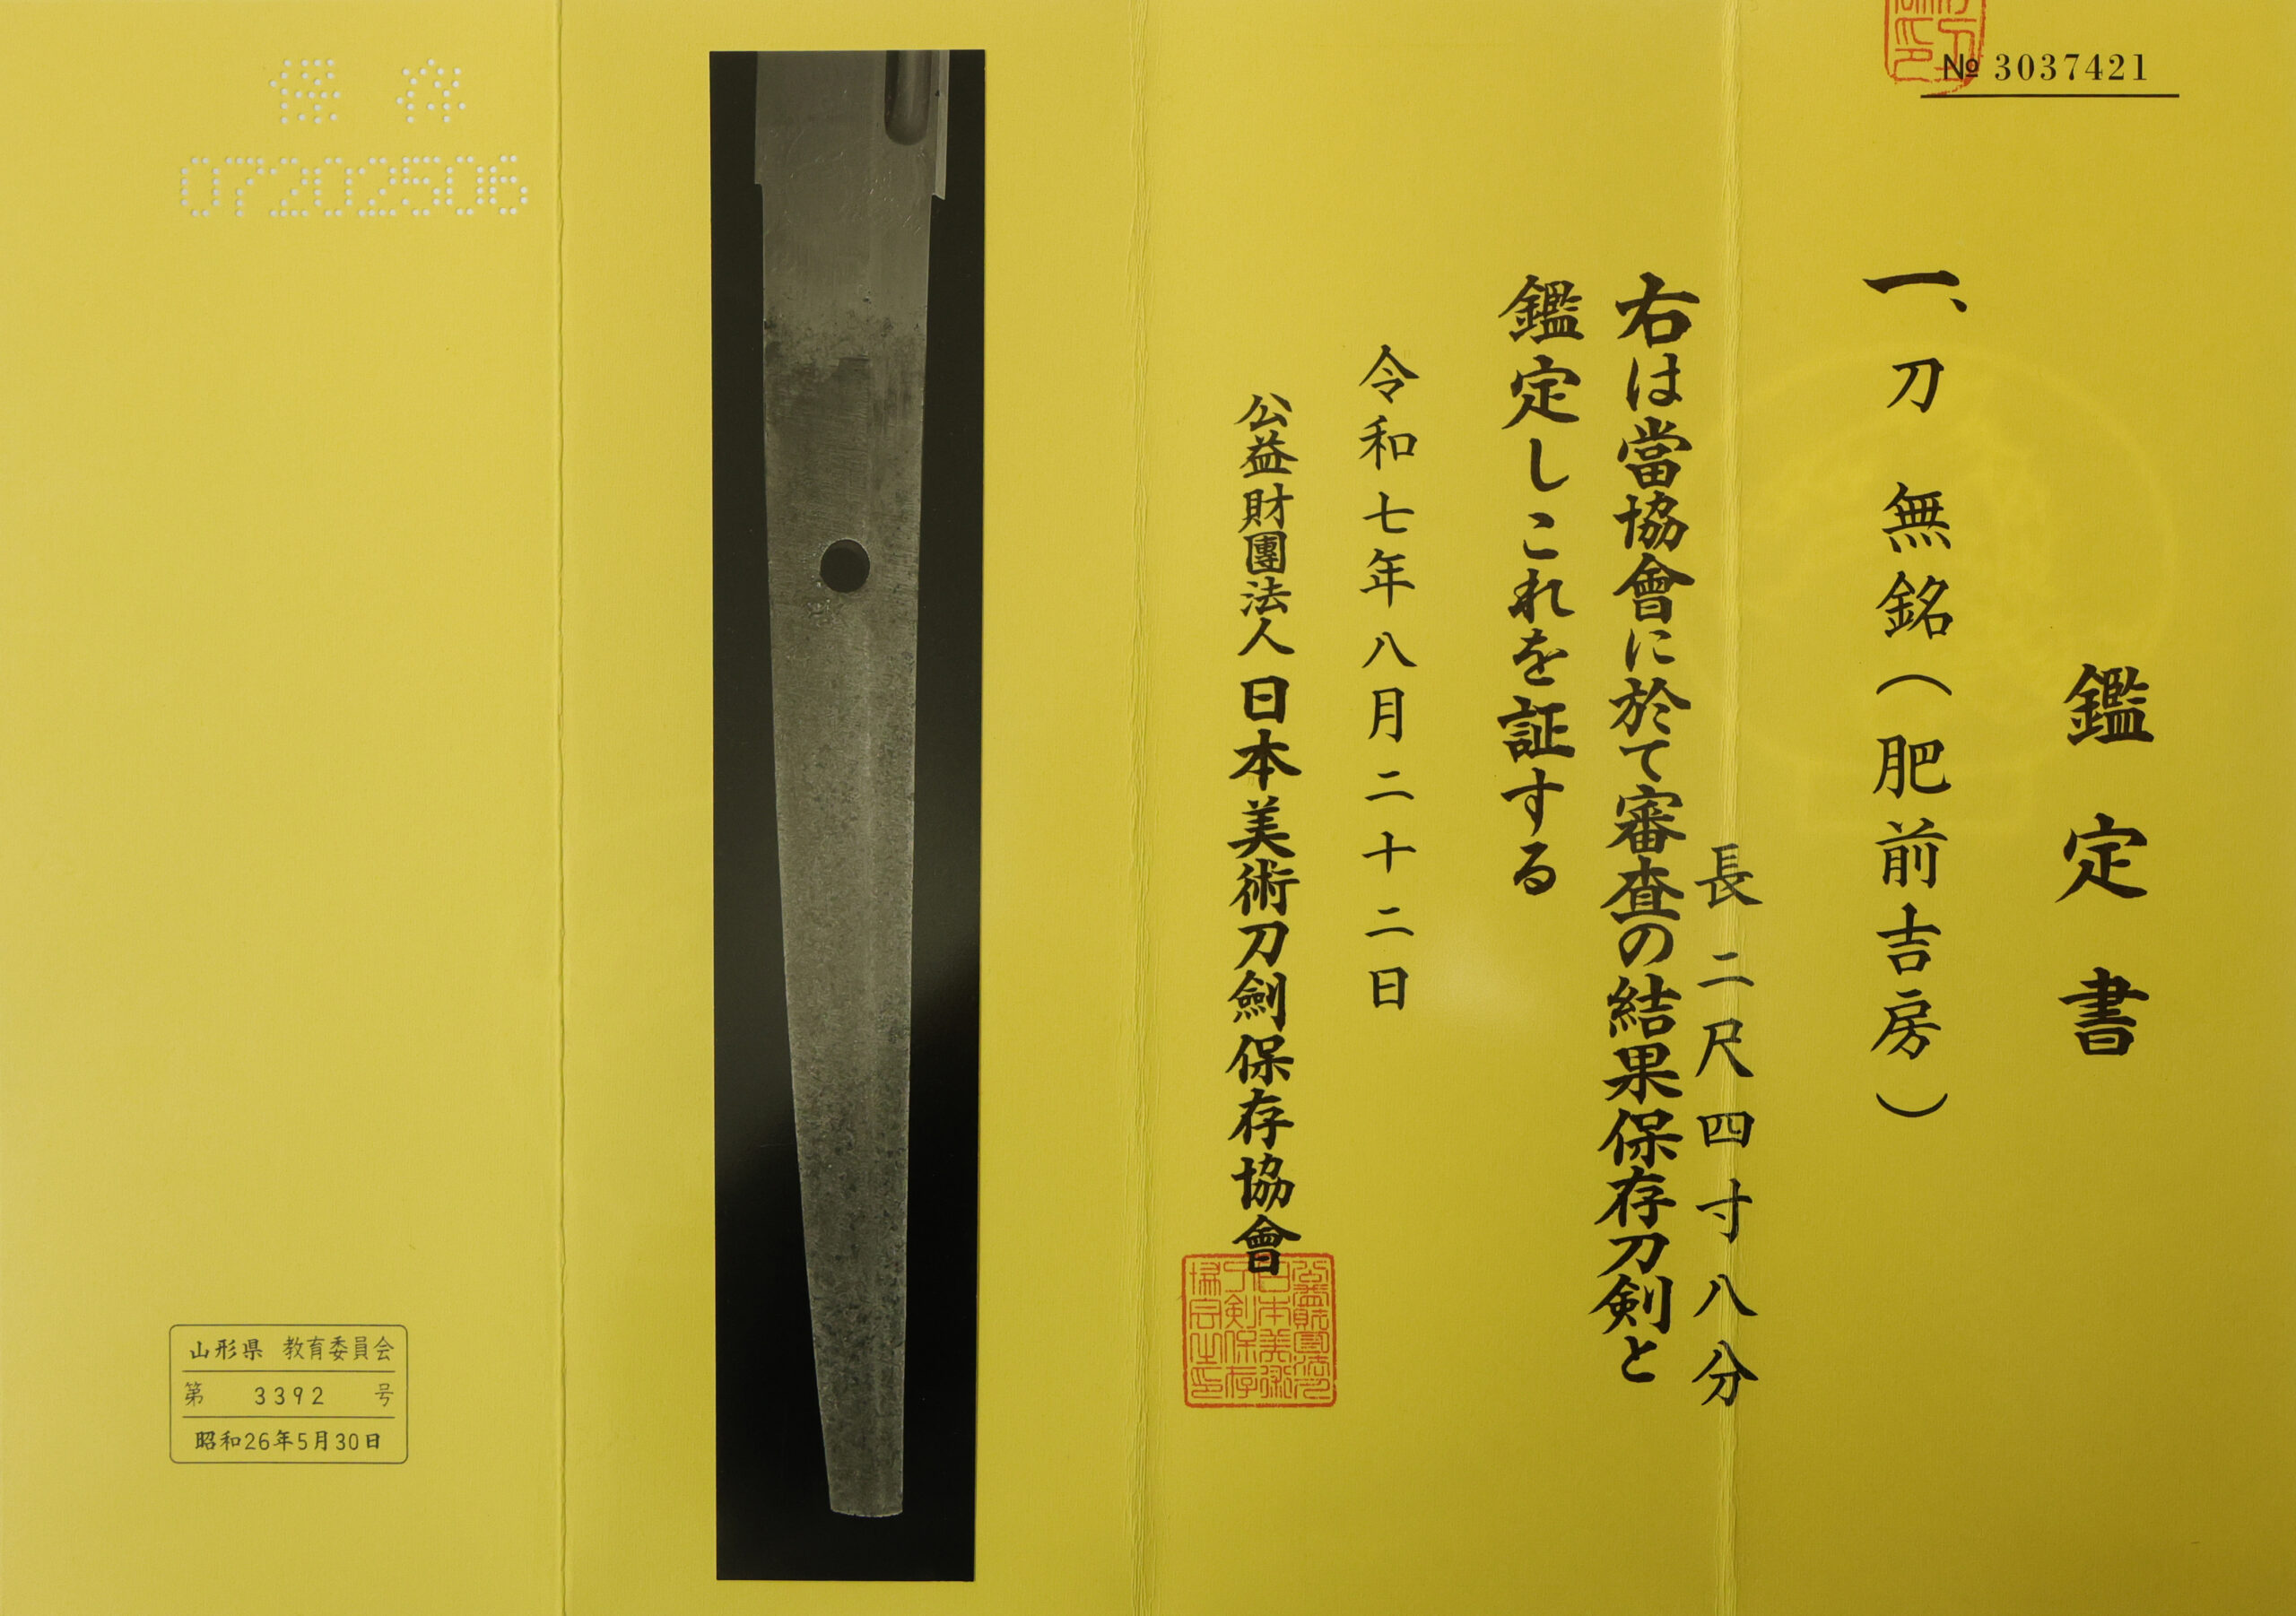 № 3037421
鑑定書
一、刀 無銘（肥前吉房）
長二尺四寸八分
右は當協會に於て審査の結果保存刀剣と
鑑定しこれを証する
令和七年八月二十二日
公益財團法人日本美術刀劍保存協會
保存
07202506
山形県 教育委員会
第 3392 号
昭和26年5月30日